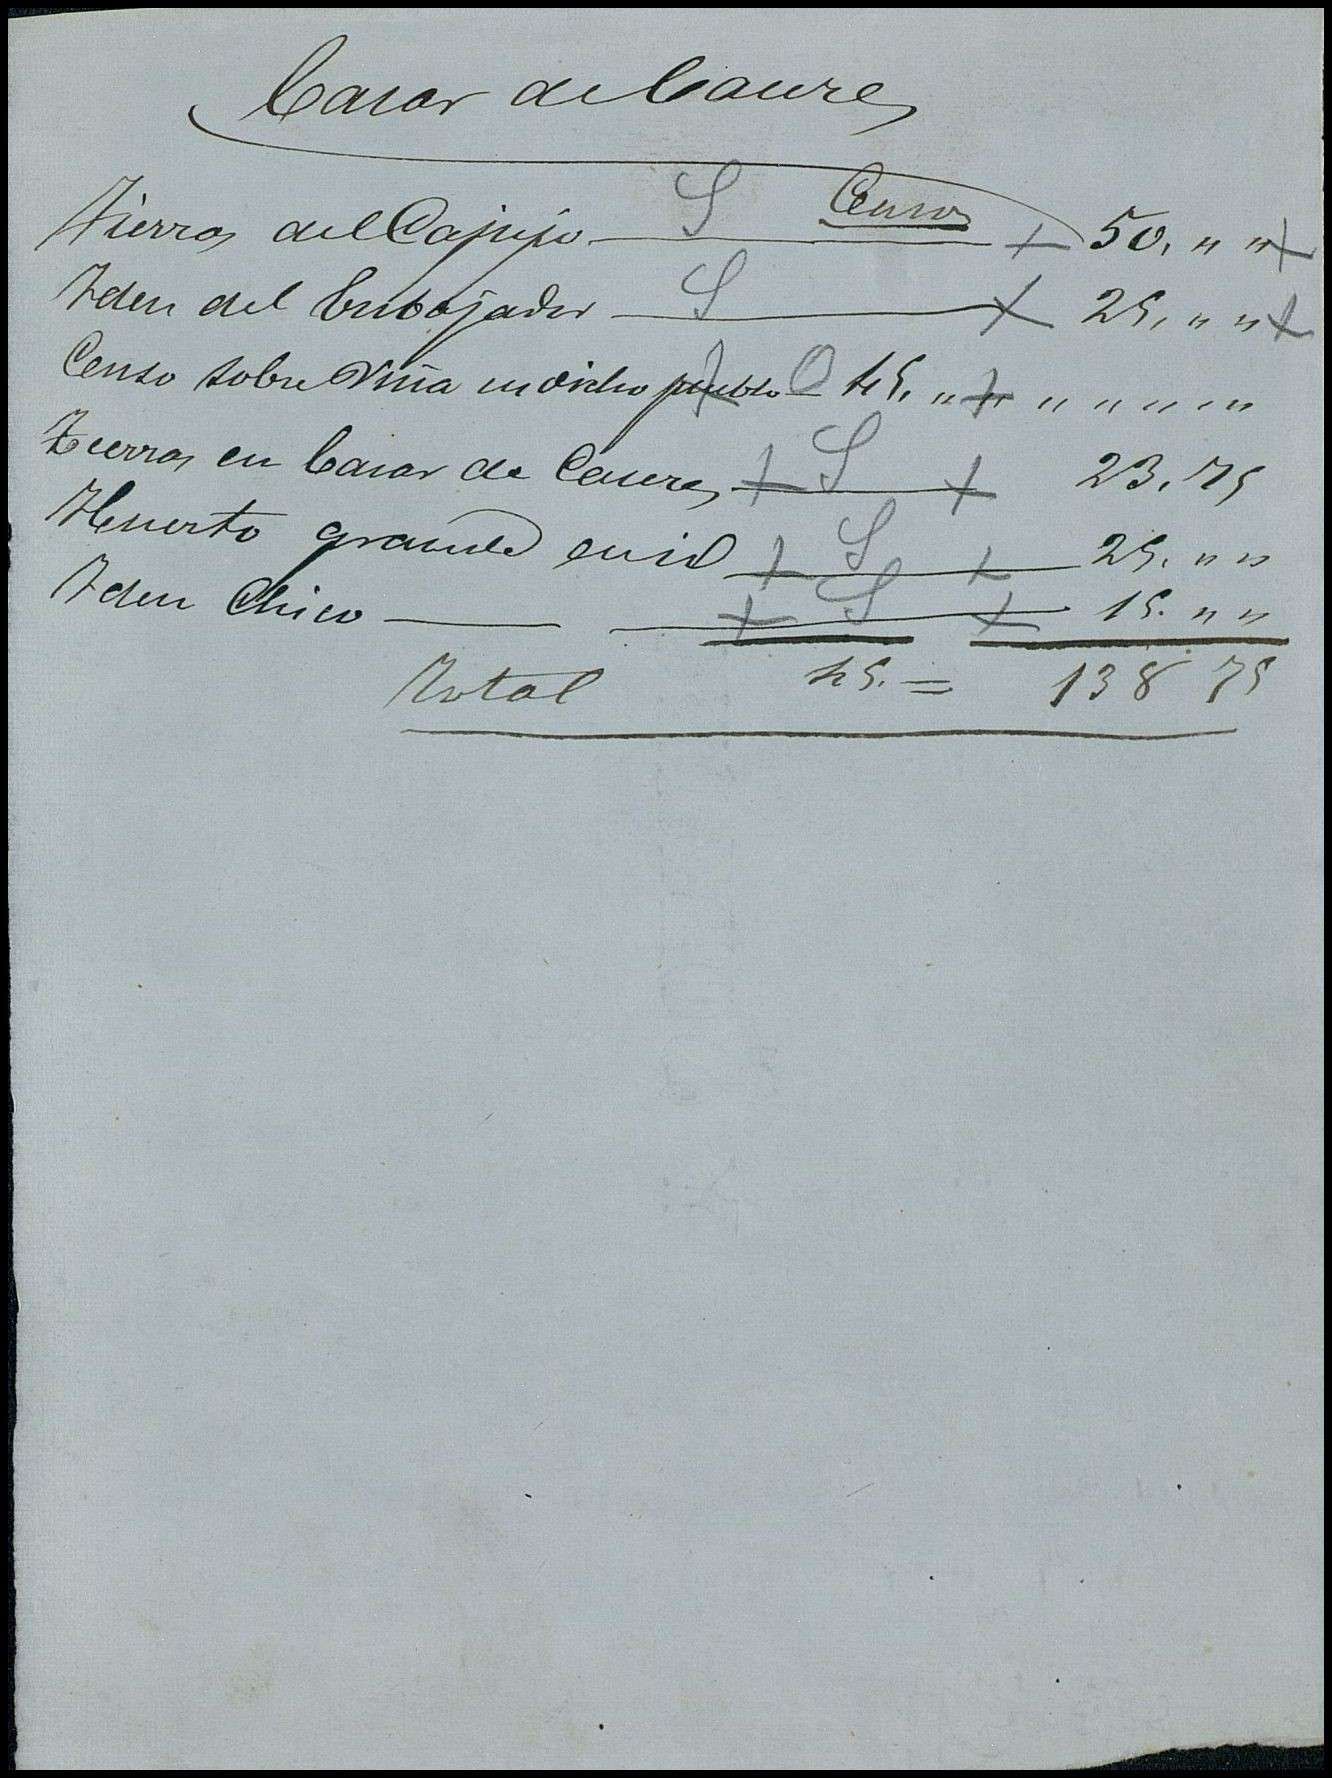 Casar de Caceres
Censos
Tierras del Cajujo S + 50. " " +
Iden del Embajador S + 25. " " +
Censo sobre Viña en dicho pueblo O 45. " " " " " "
Tierras en Casar de Caceres + S + 23.75
Huerto grande en id + S + 25. " "
Iden Chico + S + 15. " "
Total 45. = 138 75